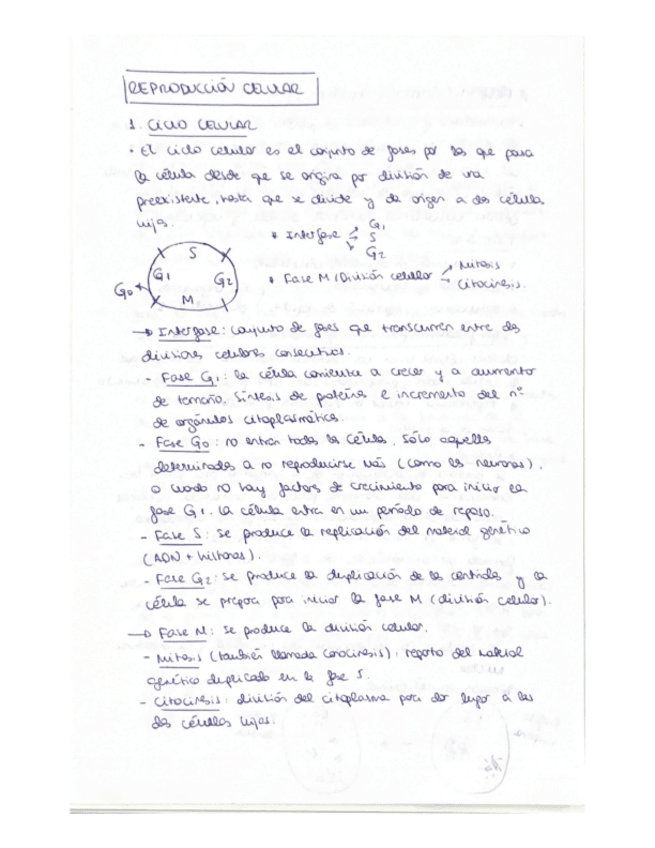 REPRODUCCIÓN CELULAR
1. CICLO CELULAR
· El ciclo celular es el conjunto de fases por las que pasa
la célula desde que se origina por división de una
preexistente, hasta que se divide y da origen a dos células
hijas.
• Interfase G1
S
G2
• Fase M (División celular) Mitosis
Citocinesis.
S
G1
G2
M
G0
→ Interfase: conjunto de fases que transcurren entre dos
divisiones celulares consecutivas.
- Fase G1: la célula comienza a crecer y a aumentar
de tamaño, síntesis de proteínas e incremento del nº
de orgánulos citoplasmáticos.
- Fase G0: no entran todas las células, sólo aquellas
determinadas a no reproducirse más (como las neuronas),
o cuando no hay factores de crecimiento para iniciar la
fase G1. La célula entra en un período de reposo.
- Fase S: se produce la replicación del material genético
(ADN + histonas).
- Fase G2: se produce la duplicación de los centriolos y la
célula se prepara para iniciar la fase M (división celular).
→ Fase M: se produce la división celular.
- Mitosis (también llamada cariocinesis): reparto del material
genético duplicado en la fase S.
- Citocinesis: división del citoplasma para dar lugar a las
dos células hijas.